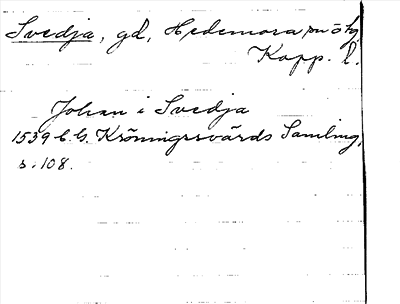 Svedja, gd, Hedemora sn ö tg
Kopp. l.
Johan i Svedja
1539 C. G. Kröningssvärds Samling,
s. 108.